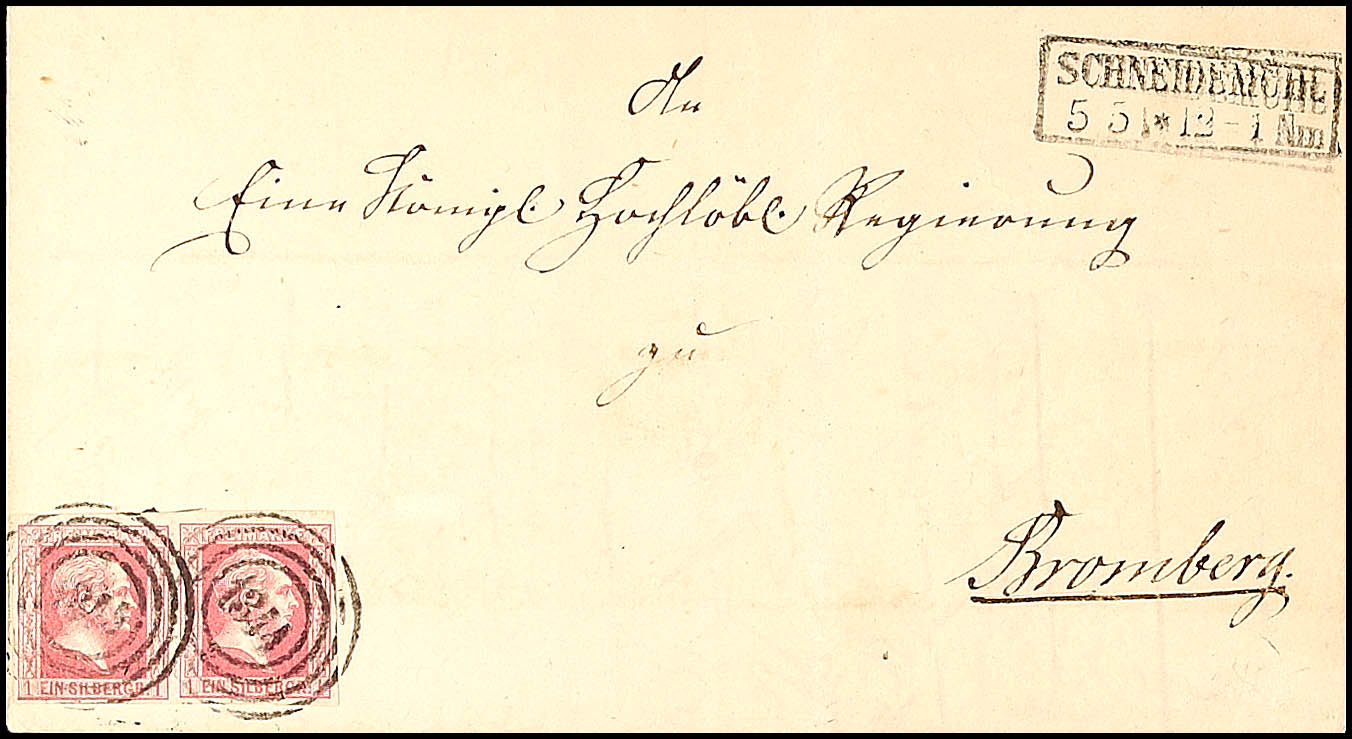 SCHNEIDEMÜHL
5 5 * 12-1 Nm
An
Eine Königl. Hochlöbl. Regierung
zu
Bromberg.
FREIMARKE FREIMARKE
1 EIN SILBERGR. 1 1 EIN SILBERGR. 1